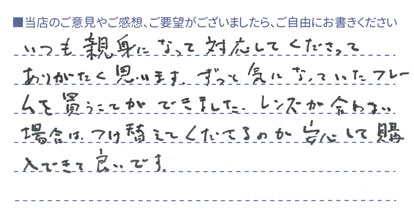 ■当店のご意見やご感想、ご要望がございましたら、ご自由にお書きください
いつも親身になって対応してくださって
ありがたく思います。ずっと気になっていたフレー
ムを買うことができました。レンズが合わない
場合は、つけ替えてくださるのが安心して購
入できて良いです。